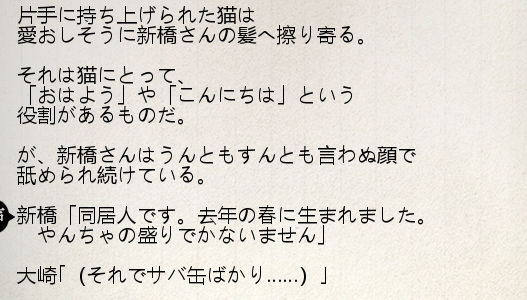 片手に持ち上げられた猫は
愛おしそうに新橋さんの髪へ擦り寄る。
それは猫にとって、
「おはよう」や「こんにちは」という
役割があるものだ。
が、新橋さんはうんともすんとも言わぬ顔で
舐められ続けている。
新橋「同居人です。去年の春に生まれました。
やんちゃの盛りでかないません」
大崎「（それでサバ缶ばかり……）」